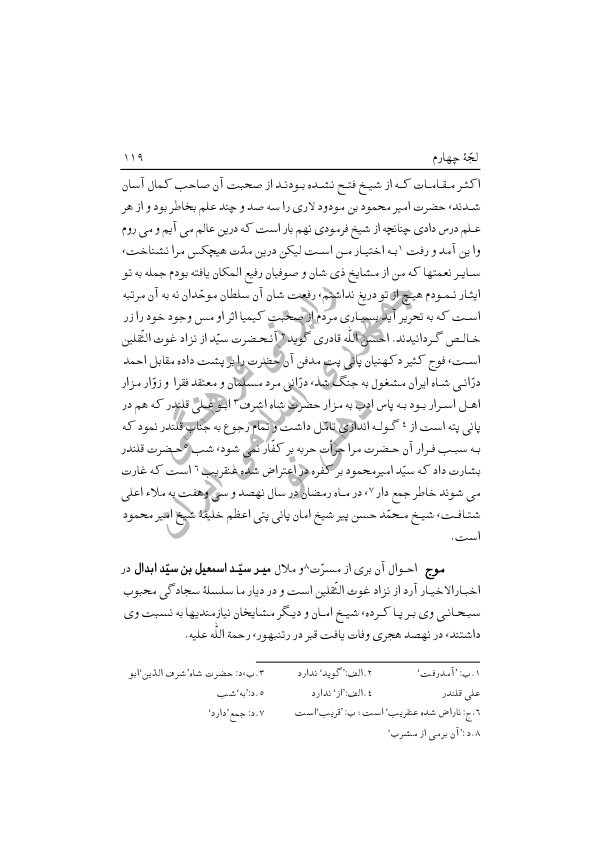 لجّهٔ چهارم ۱۱۹
اکثر مقامات که از شیخ فتح نشده بودند از صحبت آن صاحب کمال آسان
شدند، حضرت امیر محمود بن مودود لاری را سه صد و چند علم بخاطر بود و از هر
علم درس دادی چنانچه از شیخ فرمودی نهم بار است که درین عالم می آیم و می روم
وا ین آمد و رفت ۱به اختیار من است لیکن درین مدّت هیچکس مرا نشناخت،
سایر نعمتها که من از مشایخ ذی شان و صوفیان رفیع المکان یافته بودم جمله به تو
ایثار نمودم هیچ از تو دریغ نداشتم، رفعت شان آن سلطان موحّدان نه به آن مرتبه
است که به تحریر آید بسیاری مردم از صحبت کیمیا اثر او مس وجود خود را زر
خالص گردانیدند. احسن الله قادری گوید۲ آنحضرت سیّد از نژاد غوث الثّقلین
است، فوج کثیر دکهنیان پانی پت مدفن آن حضرت را بر پشت داده مقابل احمد
درّانی شاه ایران مشغول به جنگ شد، درّانی مرد مسلمان و معتقد فقرا و زوّار مزار
اهل اسرار بود به پاس ادب به مزار حضرت شاه اشرف۳ ابو علی قلندر که هم در
پانی پته است از ۴ گوله اندازی تامّل داشت و تمام رجوع به جناب قلندر نمود که
به سبب قرار آن حضرت مرا جرأت حربه بر کفّار نمی شود، شب ۵حضرت قلندر
بشارت داد که سیّد امیرمحمود بر کفره در اعتراض شده عنقریب ۶ است که غارت
می شوند خاطر جمع دار۷، در ماه رمضان در سال نهصد و سی وهفت به ملاء اعلی
شتافت، شیخ محمّد حسن پیر شیخ امان پانی پتی اعظم خلیفهٔ شیخ امیر محمود
است.
موج احوال آن بری از مسرّت۸و ملال میر سیّد اسمعیل بن سیّد ابدال در
اخبارالاخیار آرد از نژاد غوث الثّقلین است و در دیار ما سلسلهٔ سجادگی محبوب
سبحانی وی بر پا کرده، شیخ امان و دیگر مشایخان نیازمندیها به نسبت وی
داشتند، در نهصد هجری وفات یافت قبر در رتنبهور، رحمة الله علیه.
۱.ب: ’آمدرفت‘ ۲.الف:’گوید‘ ندارد ۳.ب،د: حضرت شاه’شرف الدّین‘ابو
علی قلندر ۴.الف:’از‘ ندارد ۵.د:’به‘شب
۶.ج: ناراض شده عنقریب‘ است ؛ ب: ’قریب‘است ۷.د: جمع’دارد‘
۸.د :’آن برمی از مشرب‘
رایزنی فرهنگی
جمهوری اسلامی ایران
دهلی نو